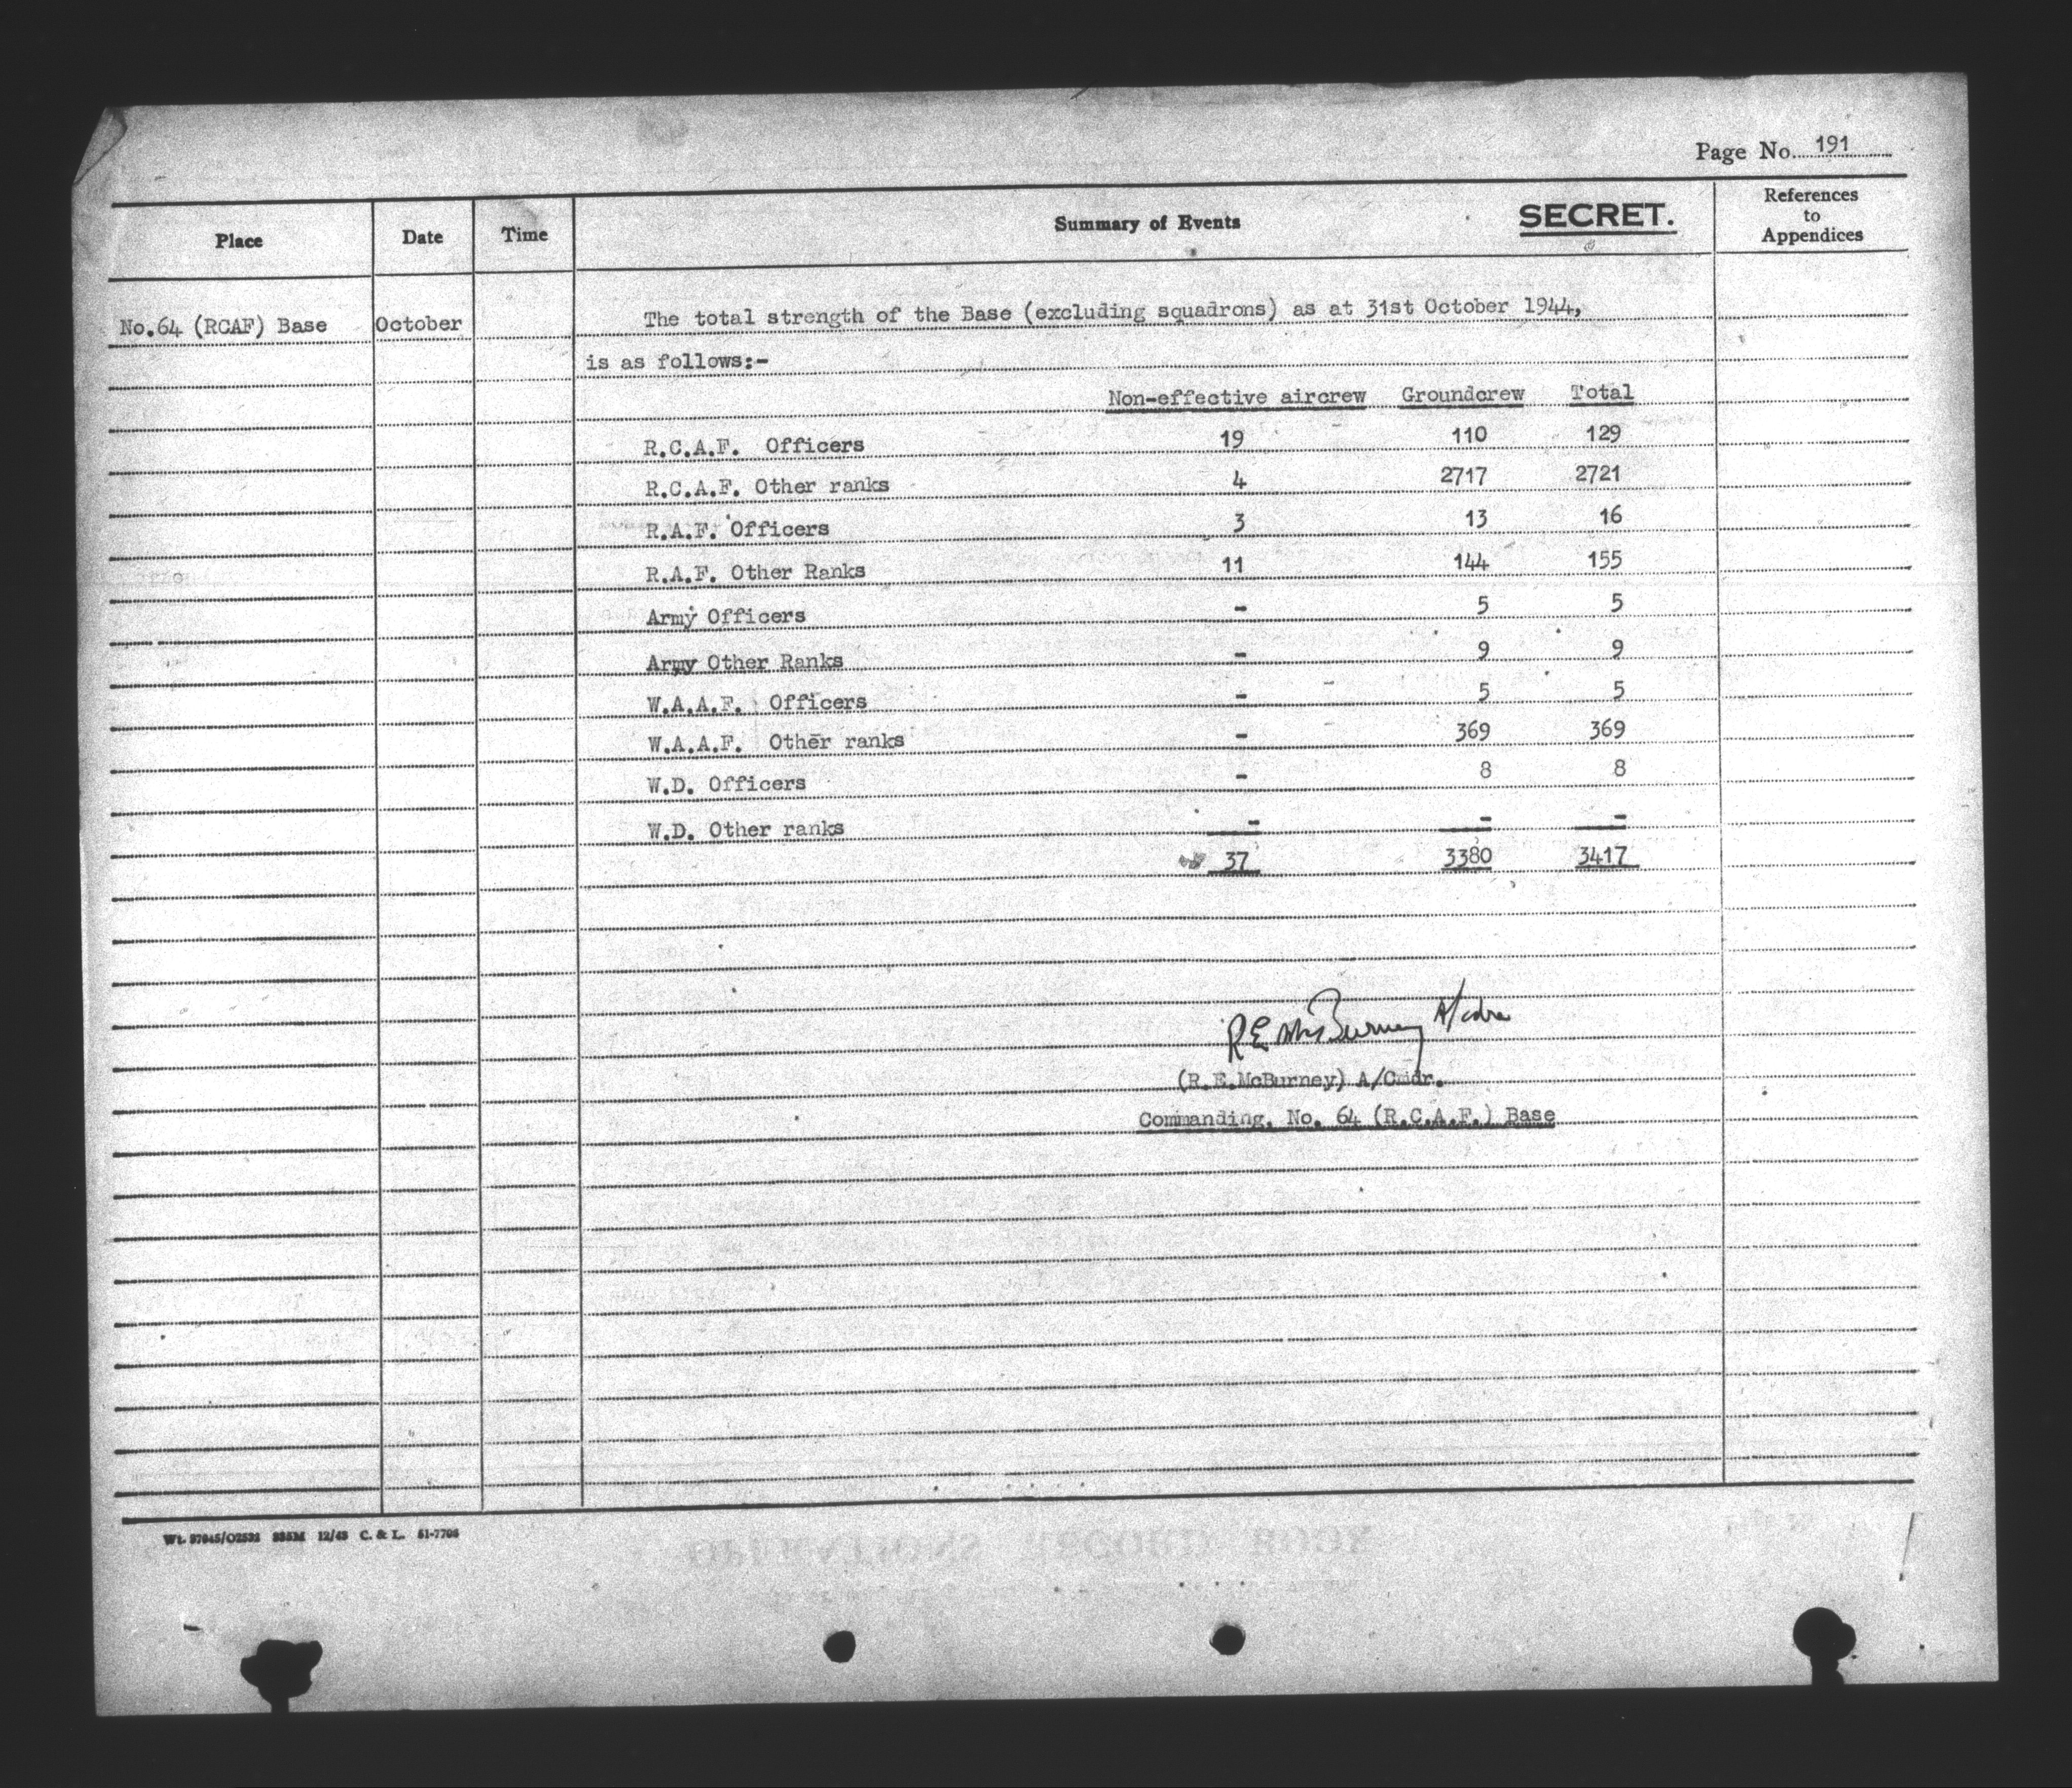 Page No. 191
Place Date Time Summary of Events SECRET. References to Appendices
No.64 (RCAF) Base October The total strength of the Base (excluding squadrons) as at 31st October 1944,
is as follows:-
Non-effective aircrew Groundcrew Total
R.C.A.F. Officers 19 110 129
R.C.A.F. Other ranks 4 2717 2721
R.A.F. Officers 3 13 16
R.A.F. Other Ranks 11 144 155
Army Officers - 5 5
Army Other Ranks - 9 9
W.A.A.F. Officers - 5 5
W.A.A.F. Other ranks - 369 369
W.D. Officers - 8 8
W.D. Other ranks - - -
37 3380 3417
R E McBurney A/cdre
(R.E.McBurney) A/Cmdr.
Commanding, No. 64 (R.C.A.F.) Base
Wt. 57045/O2532 335M 12/43 C. & L. 51-7706